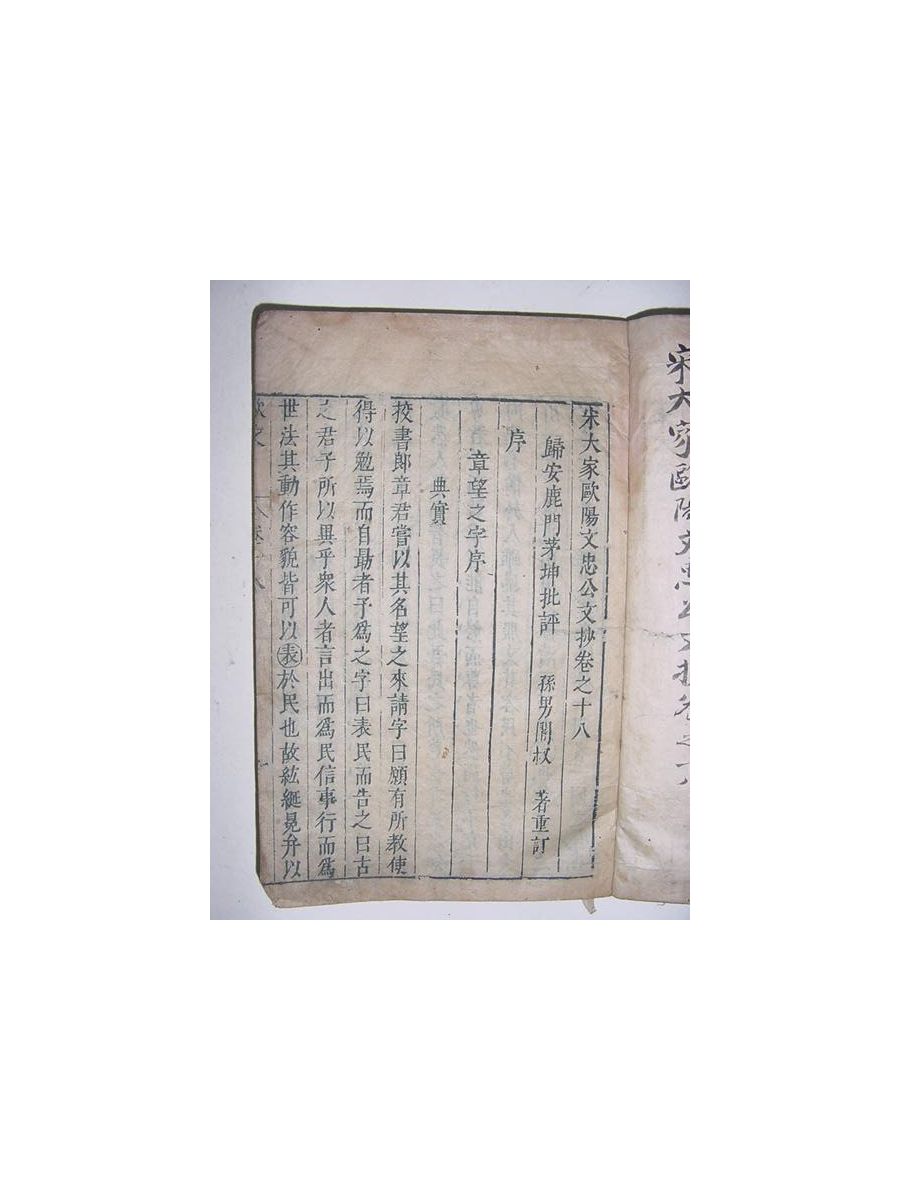 宋大家歐陽文忠公文抄卷之十
宋大家歐陽文忠公文抄卷之十八
歸安鹿門茅坤批評 孫男闇叔 著重訂
序
章望之字序
典實
挍書郎章君嘗以其名望之來請字曰願有所教使
得以勉焉而自勗者予爲之字曰表民而告之曰古
之君子所以異乎衆人者言出而爲民信事行而爲
世法其動作容貌皆可以表於民也故紘綖冕弁以